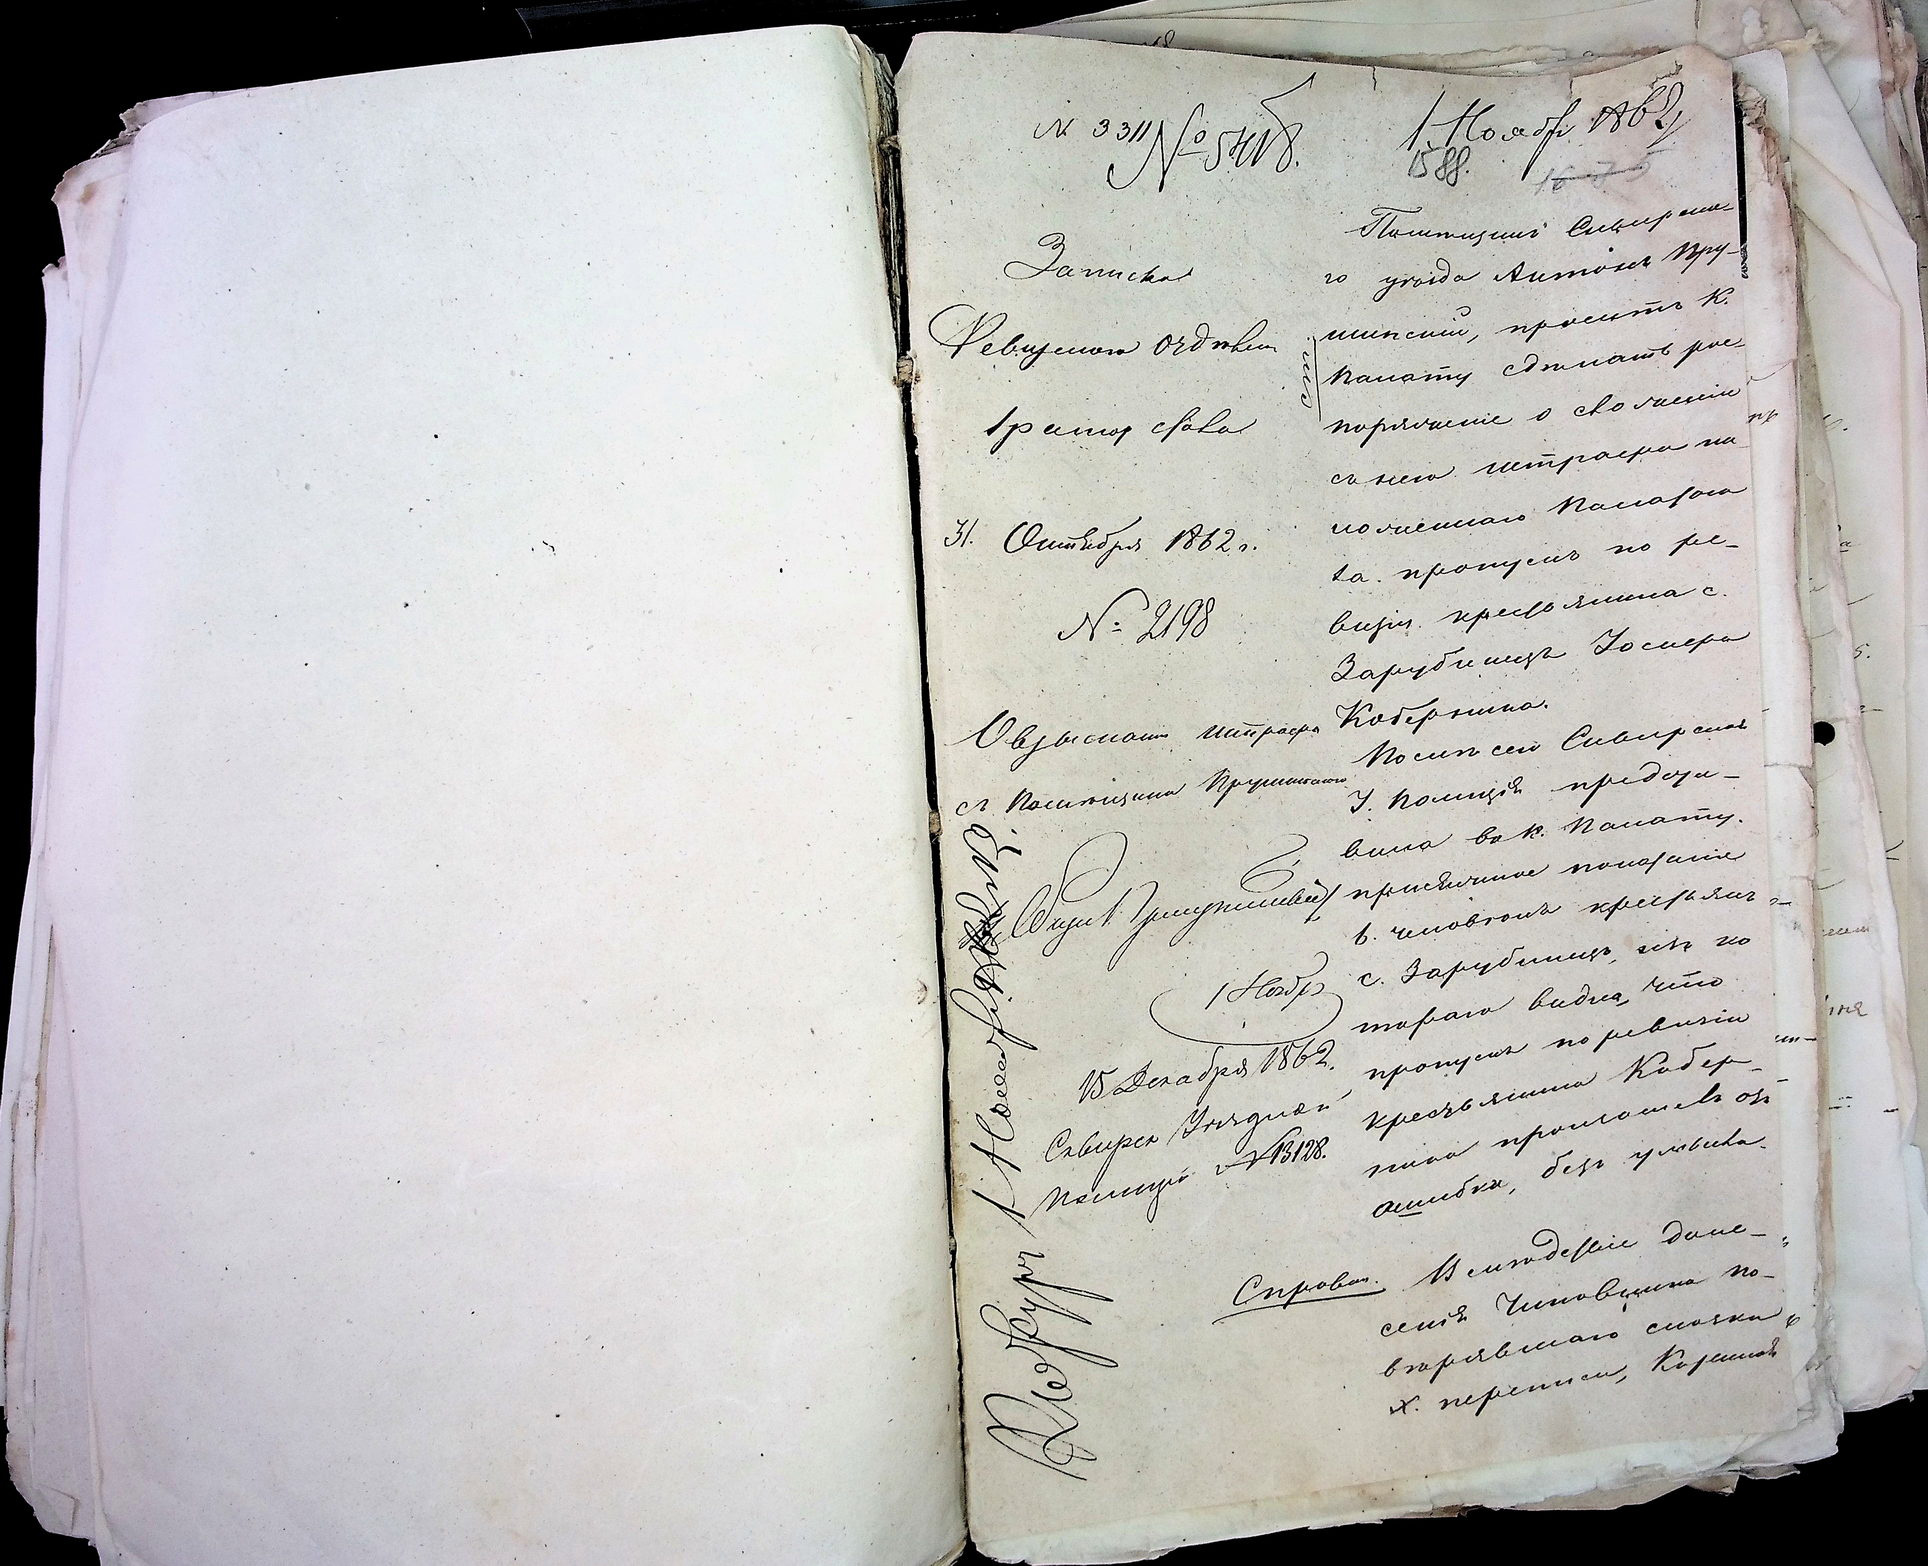 N 3311
№ 5418.
1 Ноября 1862
1588.
1675
Записка
Ревизского Отделен
1 ратор стола
31. Октября 1862 г.
№ 2198
О взыскании штрафа
съ Помѣщика Прушинскаго
1 Ноябр
15 Декабря 1862.
Сквирск Уѣздной
Полиціи № 13128.
Помѣщикъ Сквирска-
го уѣзда Антонъ Пру-
шинскій, проситъ К.
Палату сдѣлать рас-
поряженіе о сложеніи
съ него штрафа на-
ложеннаго Палатою
за пропускъ по ре-
визіи крестьянина с.
Зарубинецъ Іосифа
Коберника.
После сего Сквирская
У. Полиція предста-
вила въ К. Палату.
присяжное показаніе
6. человѣкъ крестьянъ
с. Зарубинецъ, изъ ко
тораго видно, что
пропускъ по ревизіи
крестьянина Кобер-
ника произошелъ отъ
ошибки, безъ умысла.
Справка. Вслѣдствіе доне-
сенія Чиновника по-
вѣрявшаго сказки
X. переписи, Казенная